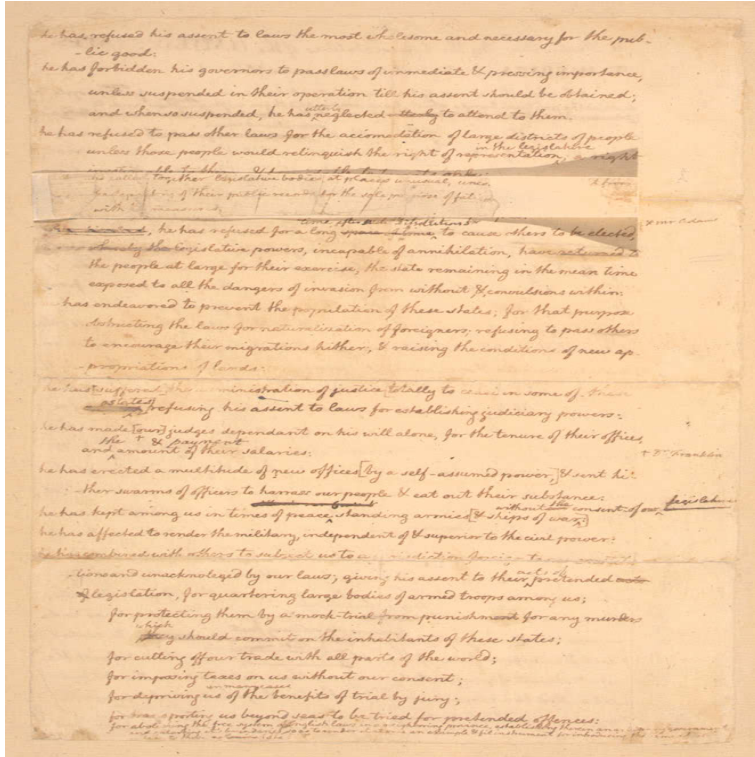 he has refused his assent to laws the most wholesome and necessary for the pub-
-lic good:
he has forbidden his governors to pass laws of immediate & pressing importance,
unless suspended in their operation till his assent should be obtained;
and when so suspended, he has utterly neglected utterly to attend to them.
he has refused to pass other laws for the accomodation of large districts of people
unless those people would relinquish the right of representation in the legislature, a right
together legislative bodies at places unusual,
of their public records for the sole purpose of
with his measures
he has refused for a long space of time time after such dissolutions to cause others to be elected,
whereby the legislative powers, incapable of annihilation, have returned to
the people at large for their exercise, the state remaining in the mean time
exposed to all the dangers of invasion from without & convulsions within:
has endeavored to prevent the population of these states; for that purpose
obstructing the laws for naturalization of foreigners; refusing to pass others
to encourage their migrations hither; & raising the conditions of new ap-
-propriations of lands:
he has suffered the administration of justice [totally to cease in some of these
states] refusing his assent to laws for establishing judiciary powers:
he has made [our] judges dependant on his will alone, for the tenure of their offices,
and the + & payment amount of their salaries:
+ Dr. Franklin
he has erected a multitude of new offices [by a self-assumed power,] & sent hi-
ther swarms of officers to harrass our people & eat out their substance:
he has kept among us in times of peace, standing armies [& ships of war] without the consent of our legislatures
he has affected to render the military, independent of & superior to the civil power:
he has combined with others to subject us to a jurisdiction foreign to
-tions and unacknoleged by our laws; giving his assent to their acts of pretended acts
of legislation, for quartering large bodies of armed troops among us;
for protecting them by a mock-trial from punishment for any murders
which they should commit on the inhabitants of these states;
for cutting off our trade with all parts of the world;
for imposing taxes on us without our consent;
for depriving us in many cases of the benefits of trial by jury;
for transporting us beyond seas to be tried for pretended offences:
for abolishing the free system of English laws in a neighboring province, establishing therein an
& mr Adams